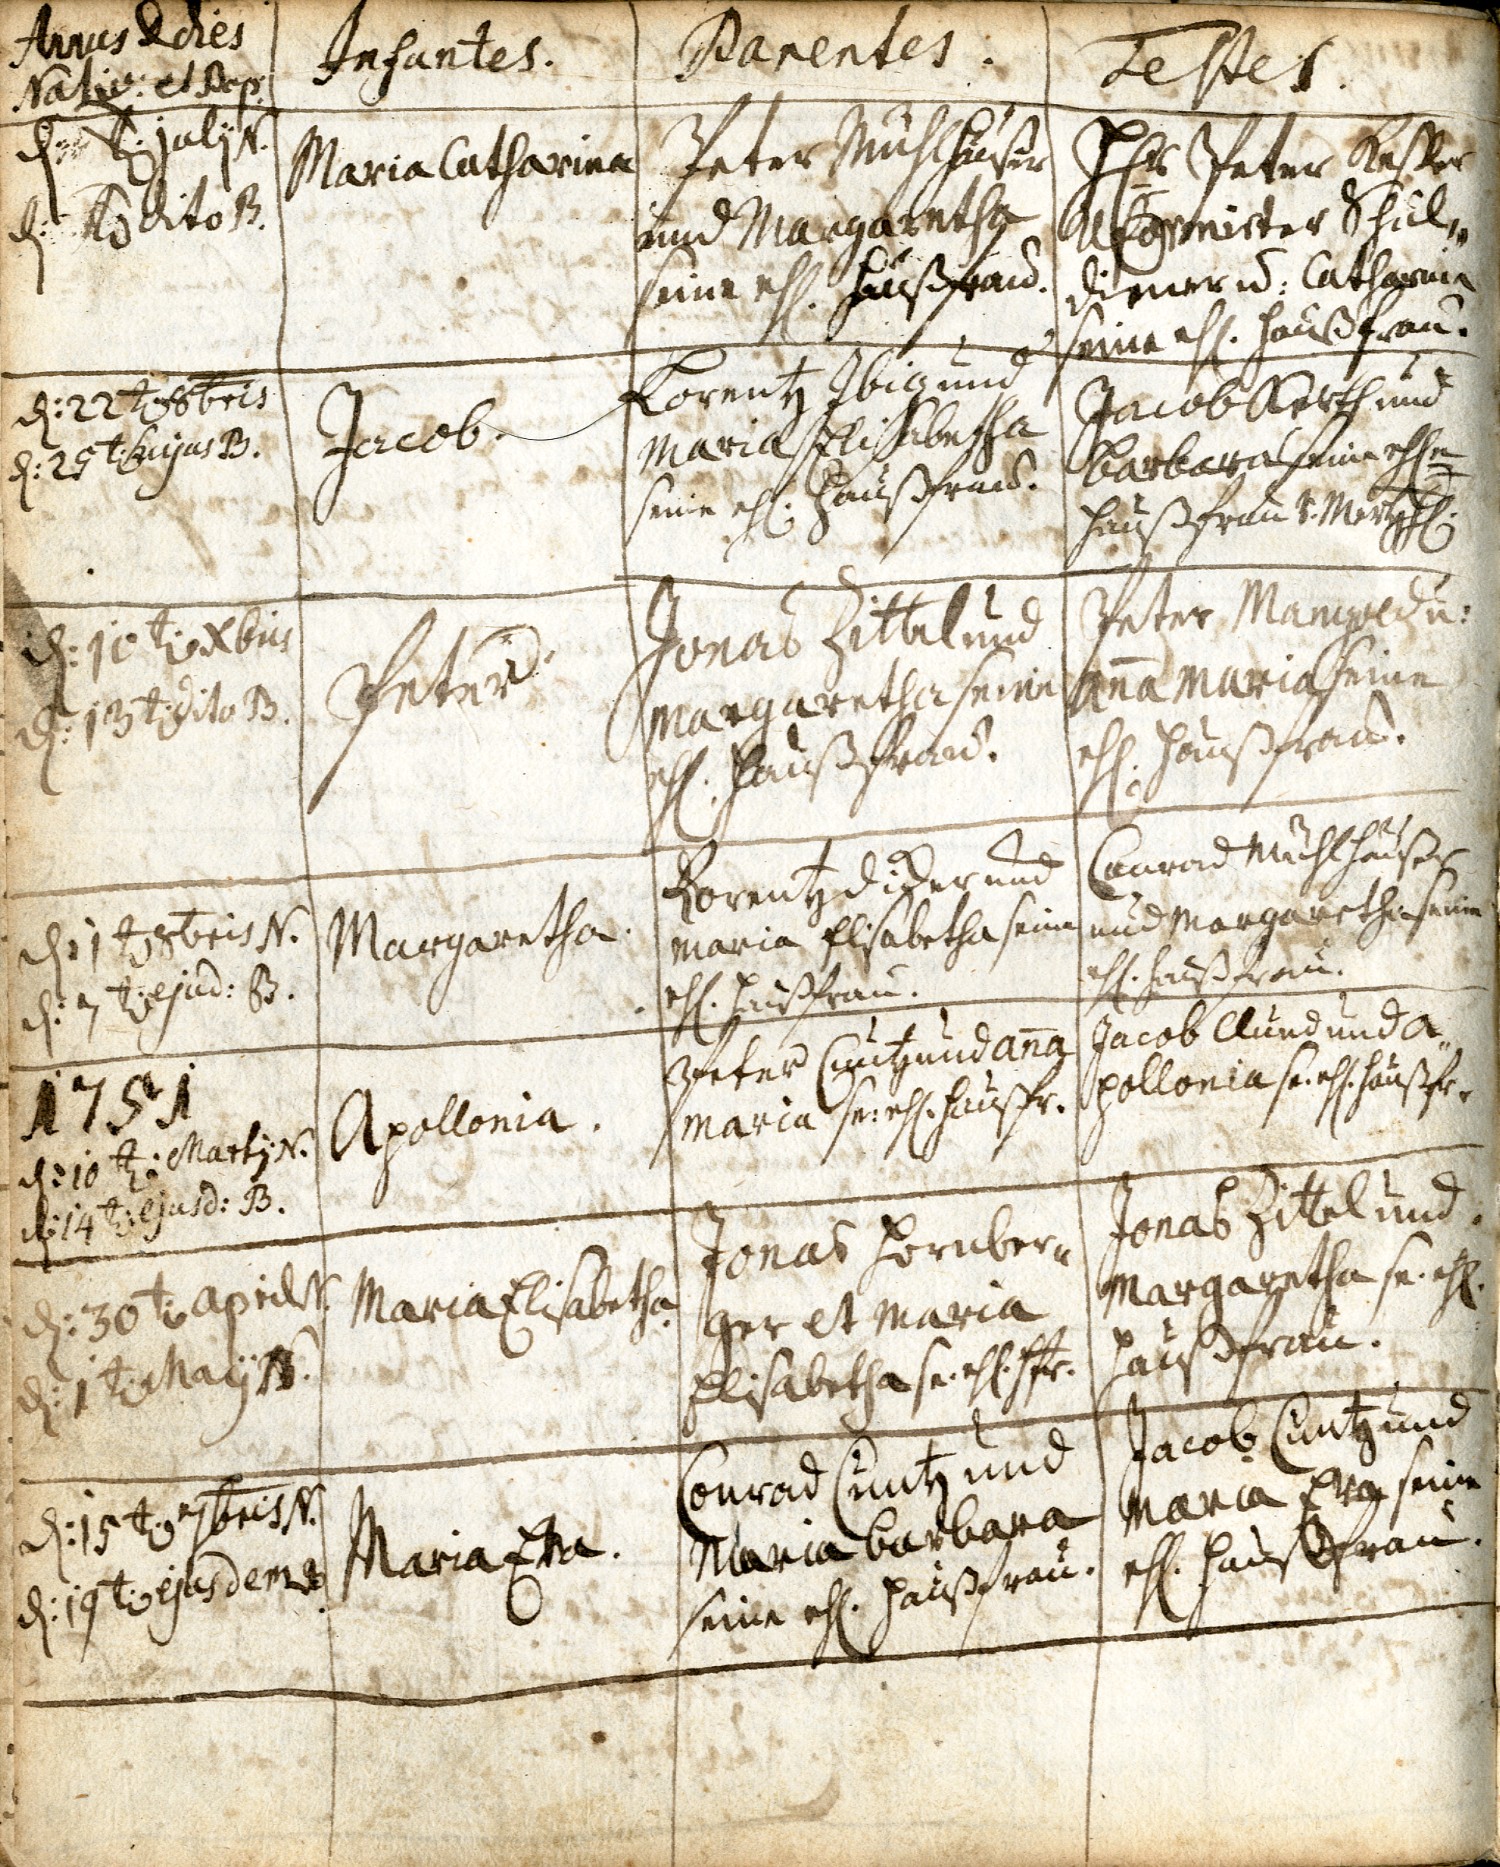 Annus & dies
Nativ: et Bap:
Infantes.
Parentes.
Testes.
July N.
dito B.
Maria Catharina
Peter Mühlhäuser
und Margaretha
seine ehl. haußfrau.
Peter
Schul„
diener u: Catharin
seine ehl. haußfrau.
d: 22t: 8bris
d: 25t: hujus B.
Jacob.
Lorentz Ibig und
Maria Elisabetha
seine ehl. haußfrau.
Jacob Kerth und
Barbara seine ehe=
haußfrau
d: 10t: Xbris
d: 13t: dito B.
Peter
Jonas Zittel und
Margaretha seine
ehl. haußfrau.
Peter Mangold u:
aña Maria seine
ehl. haußfrau.
d: 1t: 8bris N.
d: 7t: ejud: B.
Margaretha.
Lorentz und
Maria Elisabetha seine
ehl. haußfrau.
Conrad Mühlhäuser
und Margaretha seine
ehl. haußfrau.
1751
d: 10t: Martij N.
d: 14t: ejusd: B.
Apollonia.
Peter Cuntz und aña
Maria se: ehl. haußfr.
Jacob und A„
pollonia se. ehl. haußfr.
d: 30t: april N.
d: 1t: Maij
Maria Elisabetha.
Jonas Hornber„
ger et Maria
Elisabetha se. ehl. hfr.
Jonas Zittel und
Margaretha se. ehl.
haußfrau.
d: 15t: 7bris N.
d: 19t: ejusdem B
Maria Eva.
Conrad Cuntz und
Maria Barbara
seine ehl. haußfrau.
Jacob Cuntz und
Maria Eva seine
ehl. haußfrau.